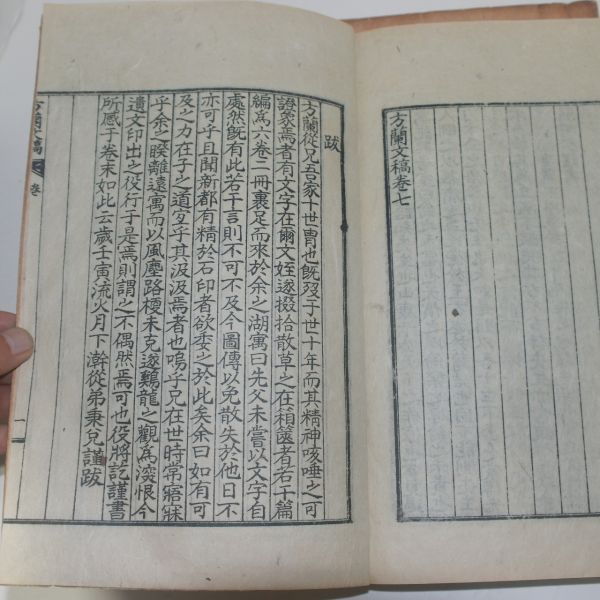 方蘭文稿卷七
跋
方蘭從兄吾家十世胄也旣歿于世十年而其精神咳唾之可
證象焉者有文字在爾文姪遂掇拾散草之在箱篋者若干篇
編爲六卷二冊裹足而來於余之湖寓曰先父未嘗以文字自
處然旣有此若干言則不可不及今圖傳以免散失於他日不
亦可乎且聞新都有精於石印者欲委之於此矣余曰如有可
及之力在子之道宜乎其汲汲焉者也嗚乎兄在世時常寤寐
乎余之暌離遠寓而以風塵路梗未克遂鷄龍之觀爲深恨今
遺文印出之役行子是焉則謂之不偶然焉可也役將訖謹書
所感于卷末如此云歲壬寅流火月下澣從弟秉兌謹跋
方蘭文稿
卷
一